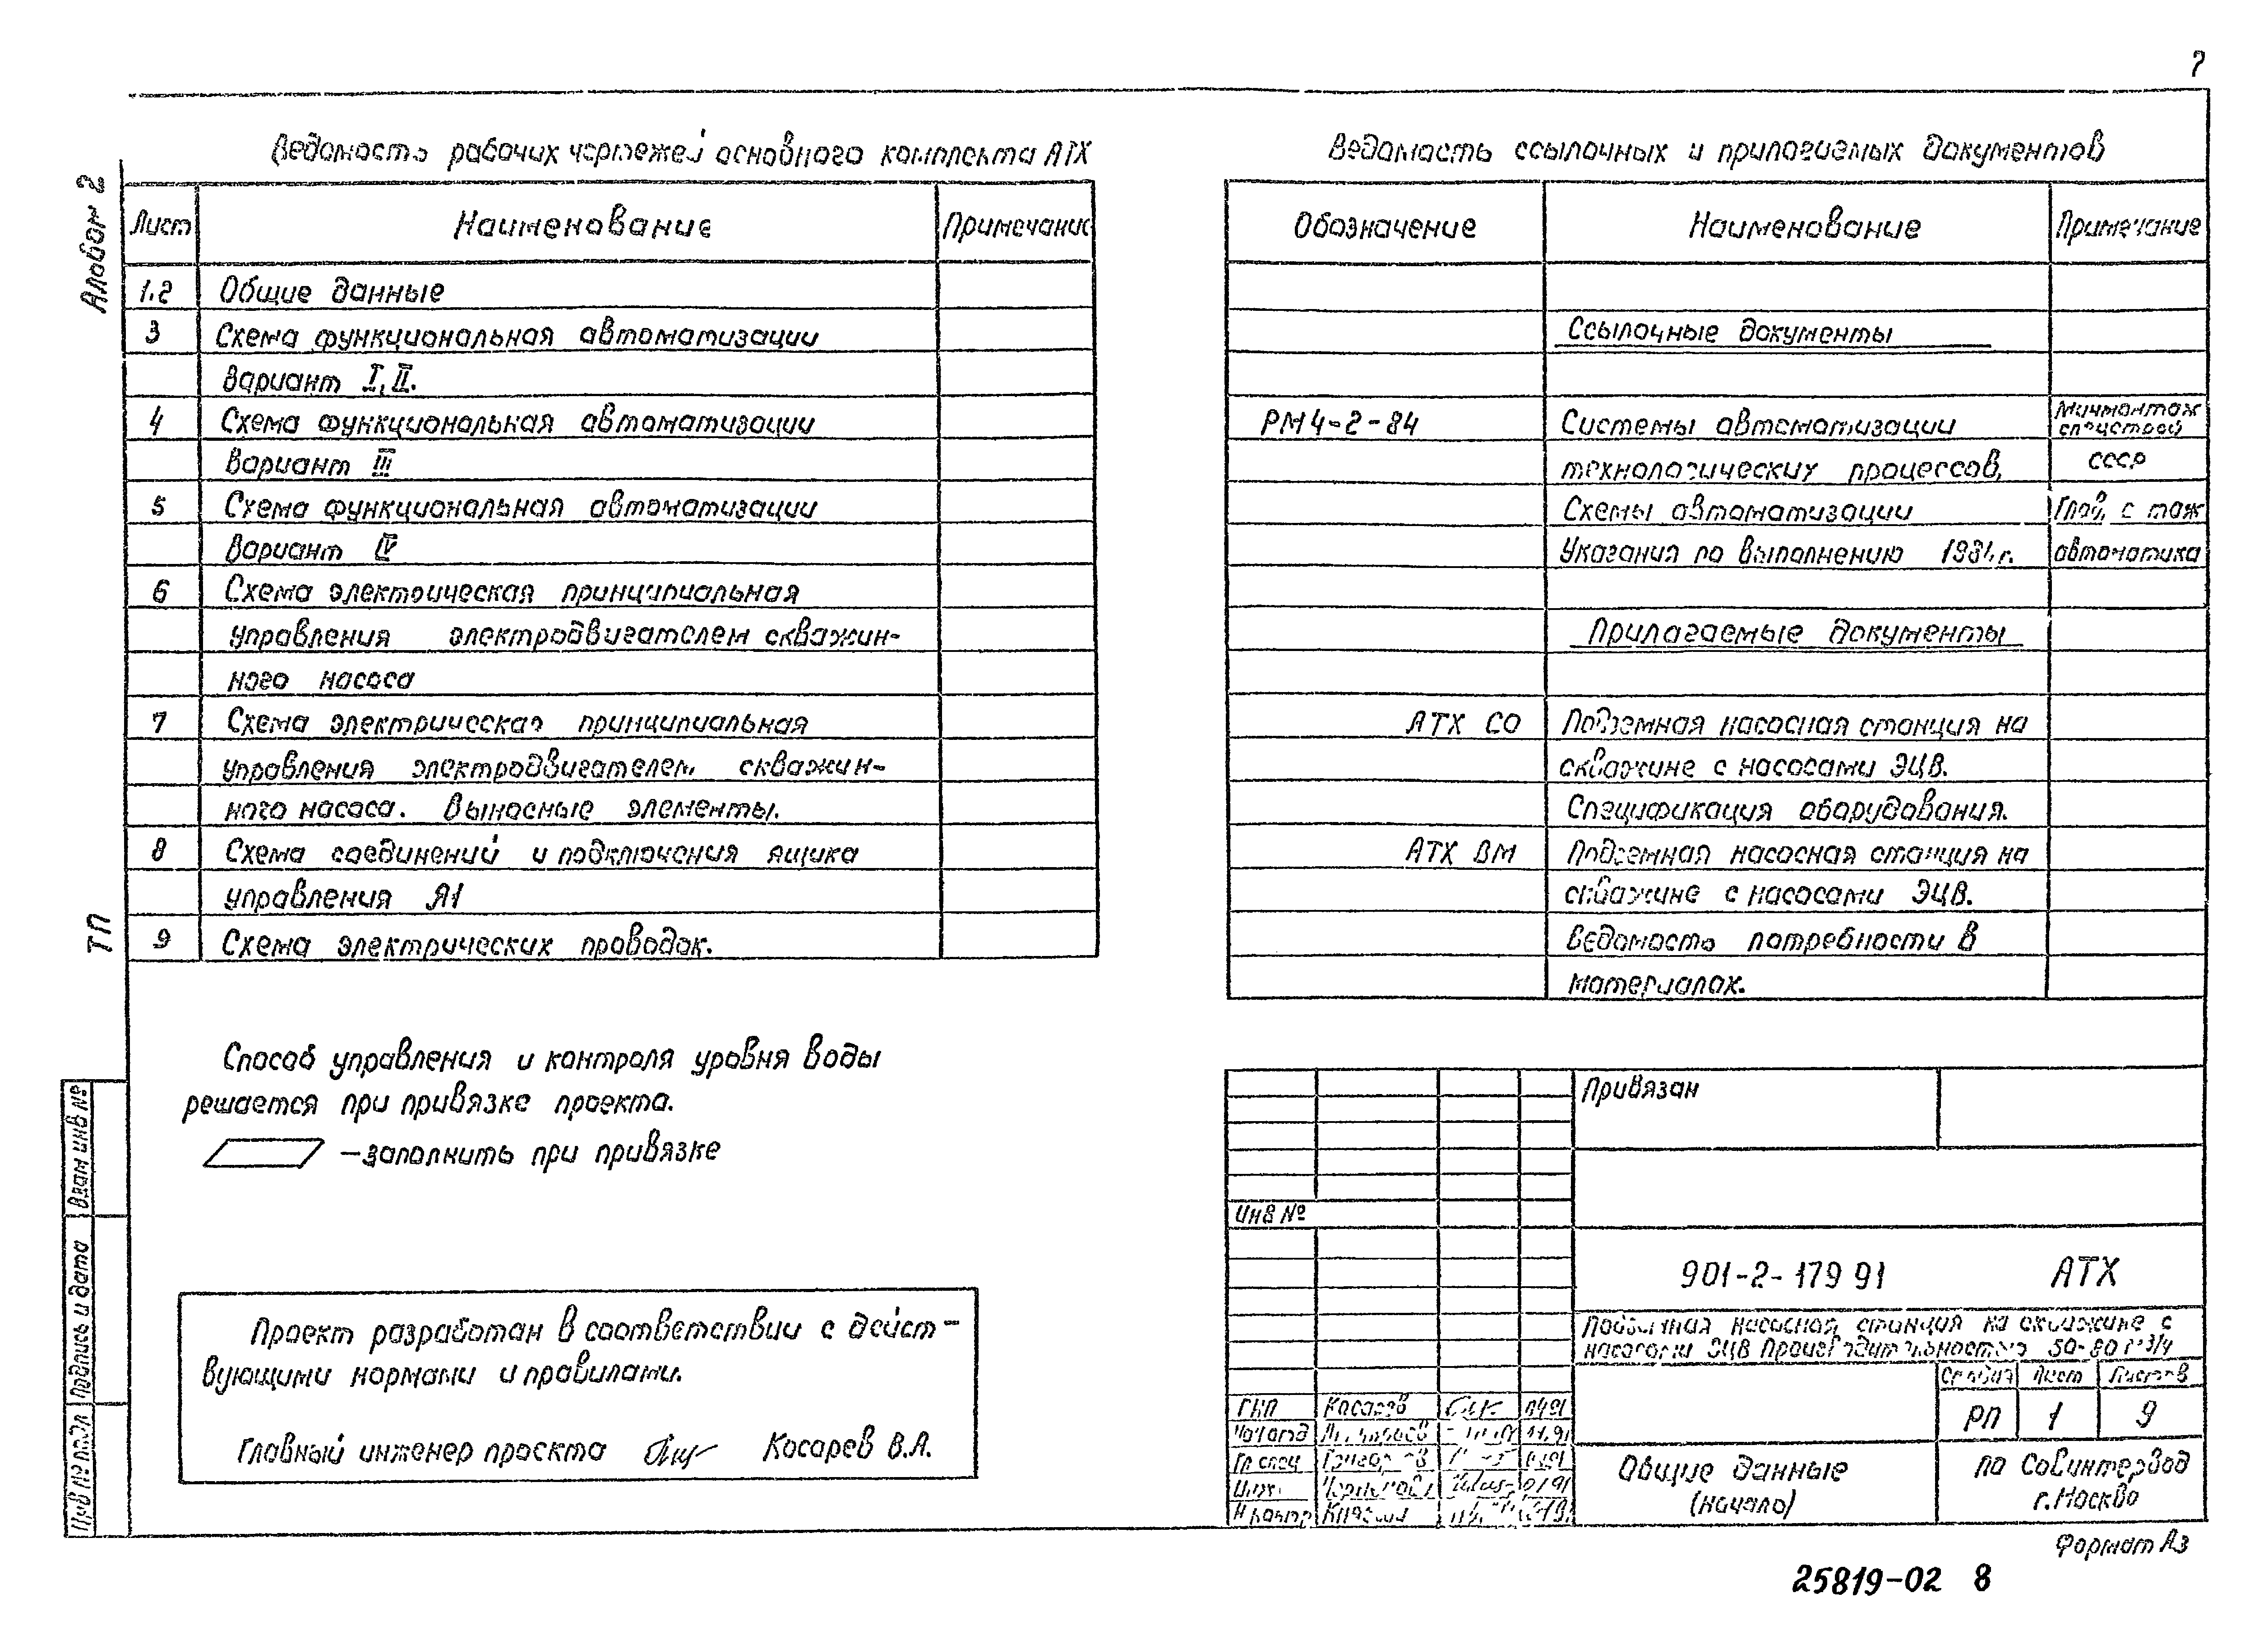 7
Альбом 2
ТП
Ведомость рабочих чертежей основного комплекта АТХ
Лист Наименование Примечание
1.2 Общие данные
3 Схема функциональная автоматизации
вариант I, II.
4 Схема функциональная автоматизации
вариант III
5 Схема функциональная автоматизации
вариант IV
6 Схема электрическая принципиальная
управления электродвигателем скважин-
ного насоса
7 Схема электрическая принципиальная
управления электродвигателем скважин-
ного насоса. Выносные элементы.
8 Схема соединений и подключения ящика
управления Я1
9 Схема электрических проводок.
Способ управления и контроля уровня воды
решается при привязке проекта.
—заполнить при привязке
Проект разработан в соответствии с дейст-
вующими нормами и правилами.
Главный инженер проекта Косарев В.А.
Взам инв №
Подпись и дата
Инв № подл
Ведомость ссылочных и прилагаемых документов
Обозначение Наименование Примечание
Ссылочные документы
РМ4-2-84 Системы автоматизации Минмонтаж
спецстрой
технологических процессов, СССР
Схемы автоматизации
Указания по выполнению автоматика
Прилагаемые документы
АТХ СО Подземная насосная станция на
скважине с насосами ЭЦВ.
Спецификация оборудования.
АТХ ВМ Подземная насосная станция на
скважине с насосами ЭЦВ.
Ведомость потребности в
материалах.
Привязан
Инв №
901-2-179 91 АТХ
Подземная насосная станция на скважине с
насосами ЭЦВ Производительностью 50-80 м3/ч
Стадия Лист Листов
РП 1 9
ГИП Косарев
Нач отд
Гл спец
Инж.
Н контр
Общие данные
(начало)
ПО Совинтервод
г. Москва
Формат А3
25819-02 8